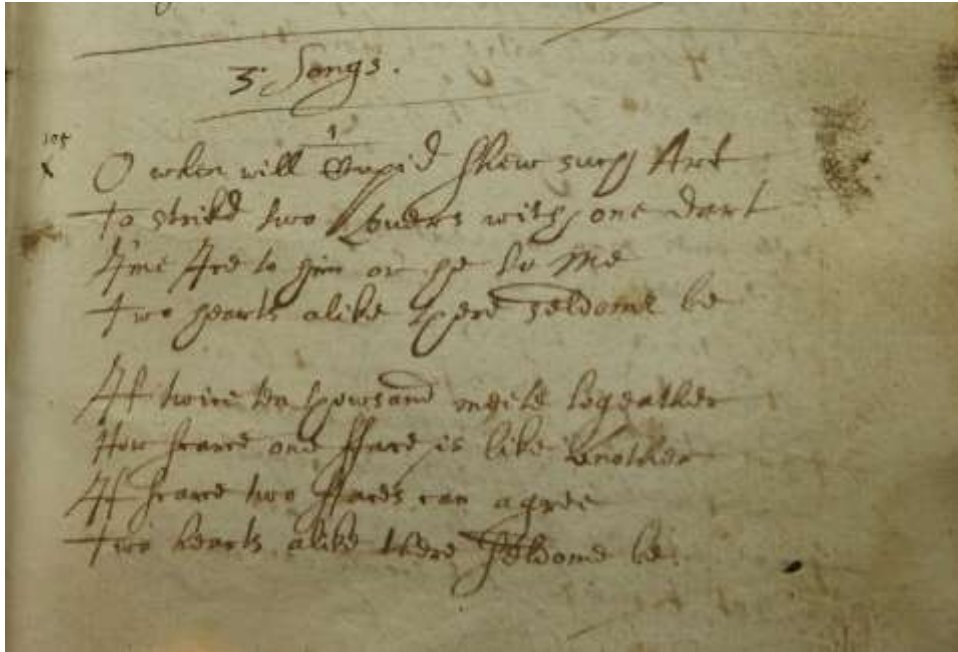 3. Songs.
1
105
O when will Cupid shew such Art
To strike two Lovers with one dart
I'me Ice to him or he to Me
Two hearts alike there seldome be
If twice ten thowsand meete togeather
How scarce one fface is like another
If scarce two ffaces can agree
Two hearts alike there seldome be.